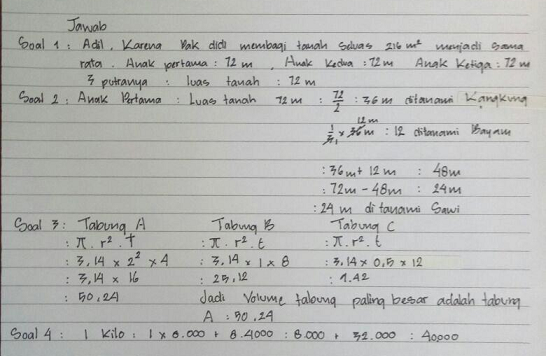 Jawab
Soal 1 : Adil. Karena Pak didi membagi tanah seluas 216 m² menjadi sama
rata. Anak pertama : 72 m, Anak Kedua : 72 m Anak Ketiga : 72 m
3 putranya : luas tanah : 72 m
Soal 2 : Anak Pertama : Luas tanah 72 m : 72/2 : 36 m ditanami Kangkung
12 m
1/3 1 x 36 m : 12 ditanami Bayam
: 36 m + 12 m : 48 m
: 72 m - 48 m : 24 m
: 24 m ditanami Sawi
Soal 3 : Tabung A Tabung B Tabung C
: π . r² . t : π . r² . t : π . r² . t
: 3,14 x 2² x 4 : 3,14 x 1 x 8 : 3,14 x 0,5 x 12
: 3,14 x 16 : 25,12 : 9.42
: 50,24 Jadi Volume tabung paling besar adalah tabung
A : 50,24
Soal 4 : 1 Kilo : 1 x 8.000 + 8.4000 : 8.000 + 32.000 : 40000